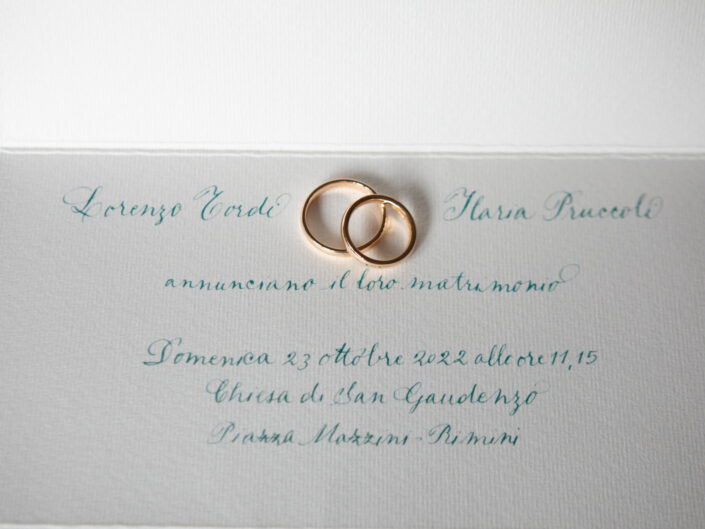 Lorenzo Tordi Ilaria Pruccoli
annunciano il loro matrimonio
Domenica 23 ottobre 2022 alle ore 11,15
Chiesa di San Gaudenzo
Piazza Mazzini - Rimini